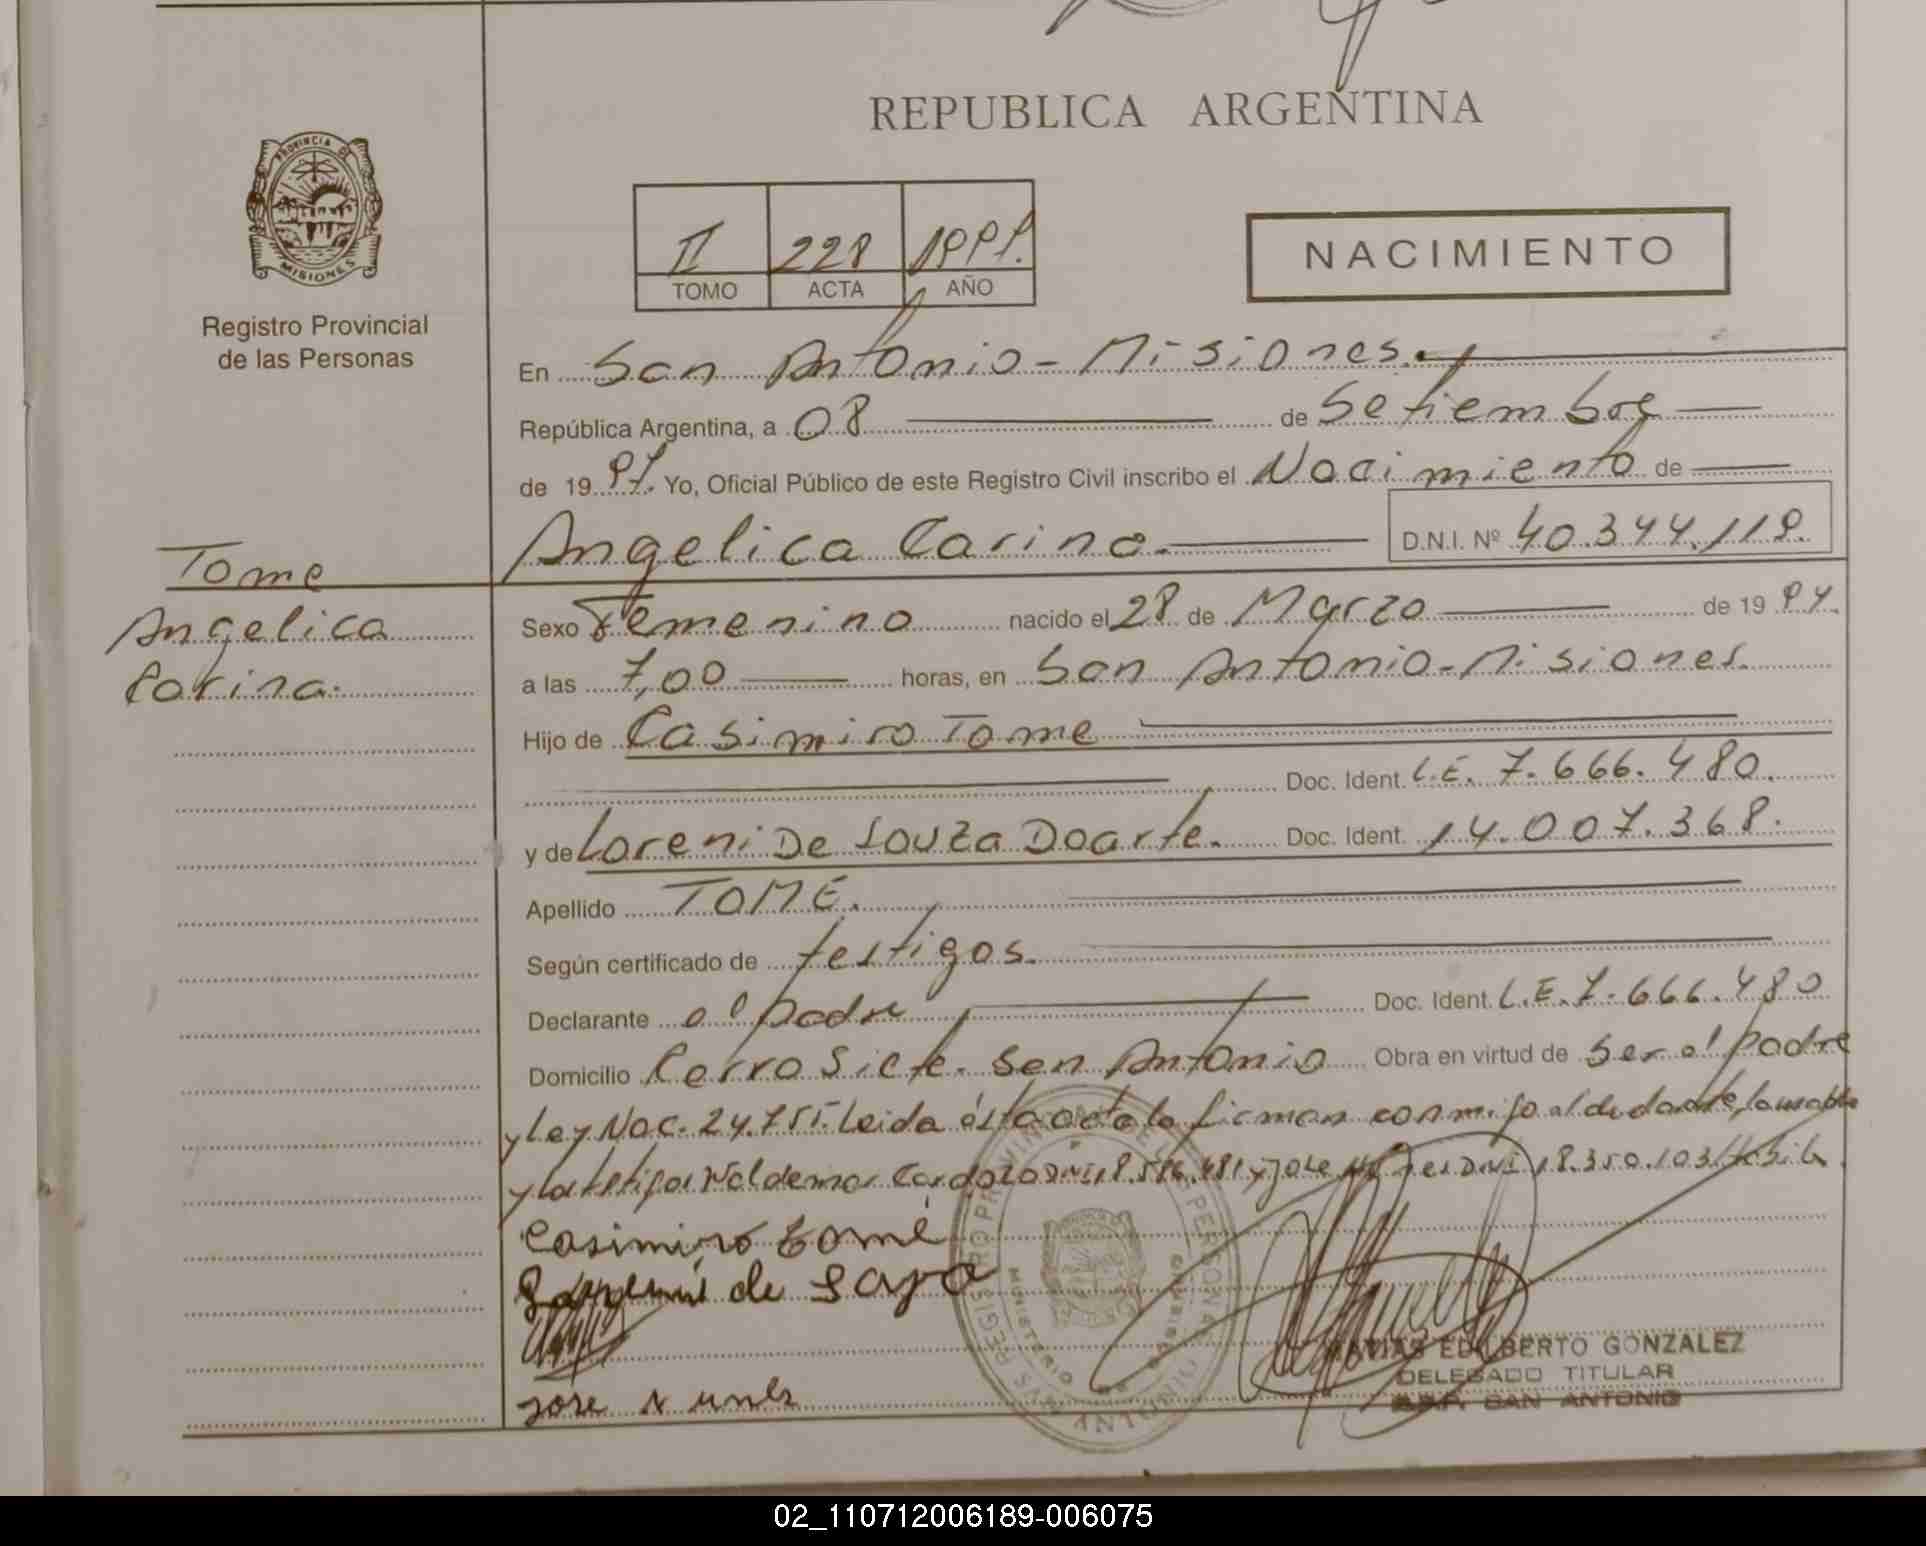 REPUBLICA ARGENTINA
PROVINCIA DE
MISIONES
Registro Provincial
de las Personas
II 228
TOMO ACTA AÑO
NACIMIENTO
En San Antonio - Misiones.
República Argentina, a 08 de Setiembre
de 19 Yo, Oficial Público de este Registro Civil inscribo el Nacimiento de
Angelica Carina. D.N.I. Nº 40.344.119.
Tome
Angelica
Carina.
Sexo Femenino nacido el 28 de Marzo de 19 94.
a las 7,00 horas, en San Antonio - Misiones.
Hijo de Casimiro Tome
Doc. Ident. L.E. 7.666.480.
y de Loreni De Souza Doarte. Doc. Ident. 14.007.368.
Apellido TOME.
Según certificado de testigos.
Declarante el padre Doc. Ident. L.E. 7.666.480
Domicilio Cerro Siete. San Antonio Obra en virtud de Ser el padre
y Ley Nac. 24.755. Leida ésta acta la firman conmigo el declarante,
y Waldemar Cardozo y Jose DNI 18.350.103
Casimiro tomé
de
jose Nunes
REGISTRO PROVINCIAL DE LAS PERSONAS
MINISTERIO DE GOBIERNO
SAN ANTONIO
MATIAS EDILBERTO GONZALEZ
DELEGADO TITULAR
SAN ANTONIO
02_110712006189-006075